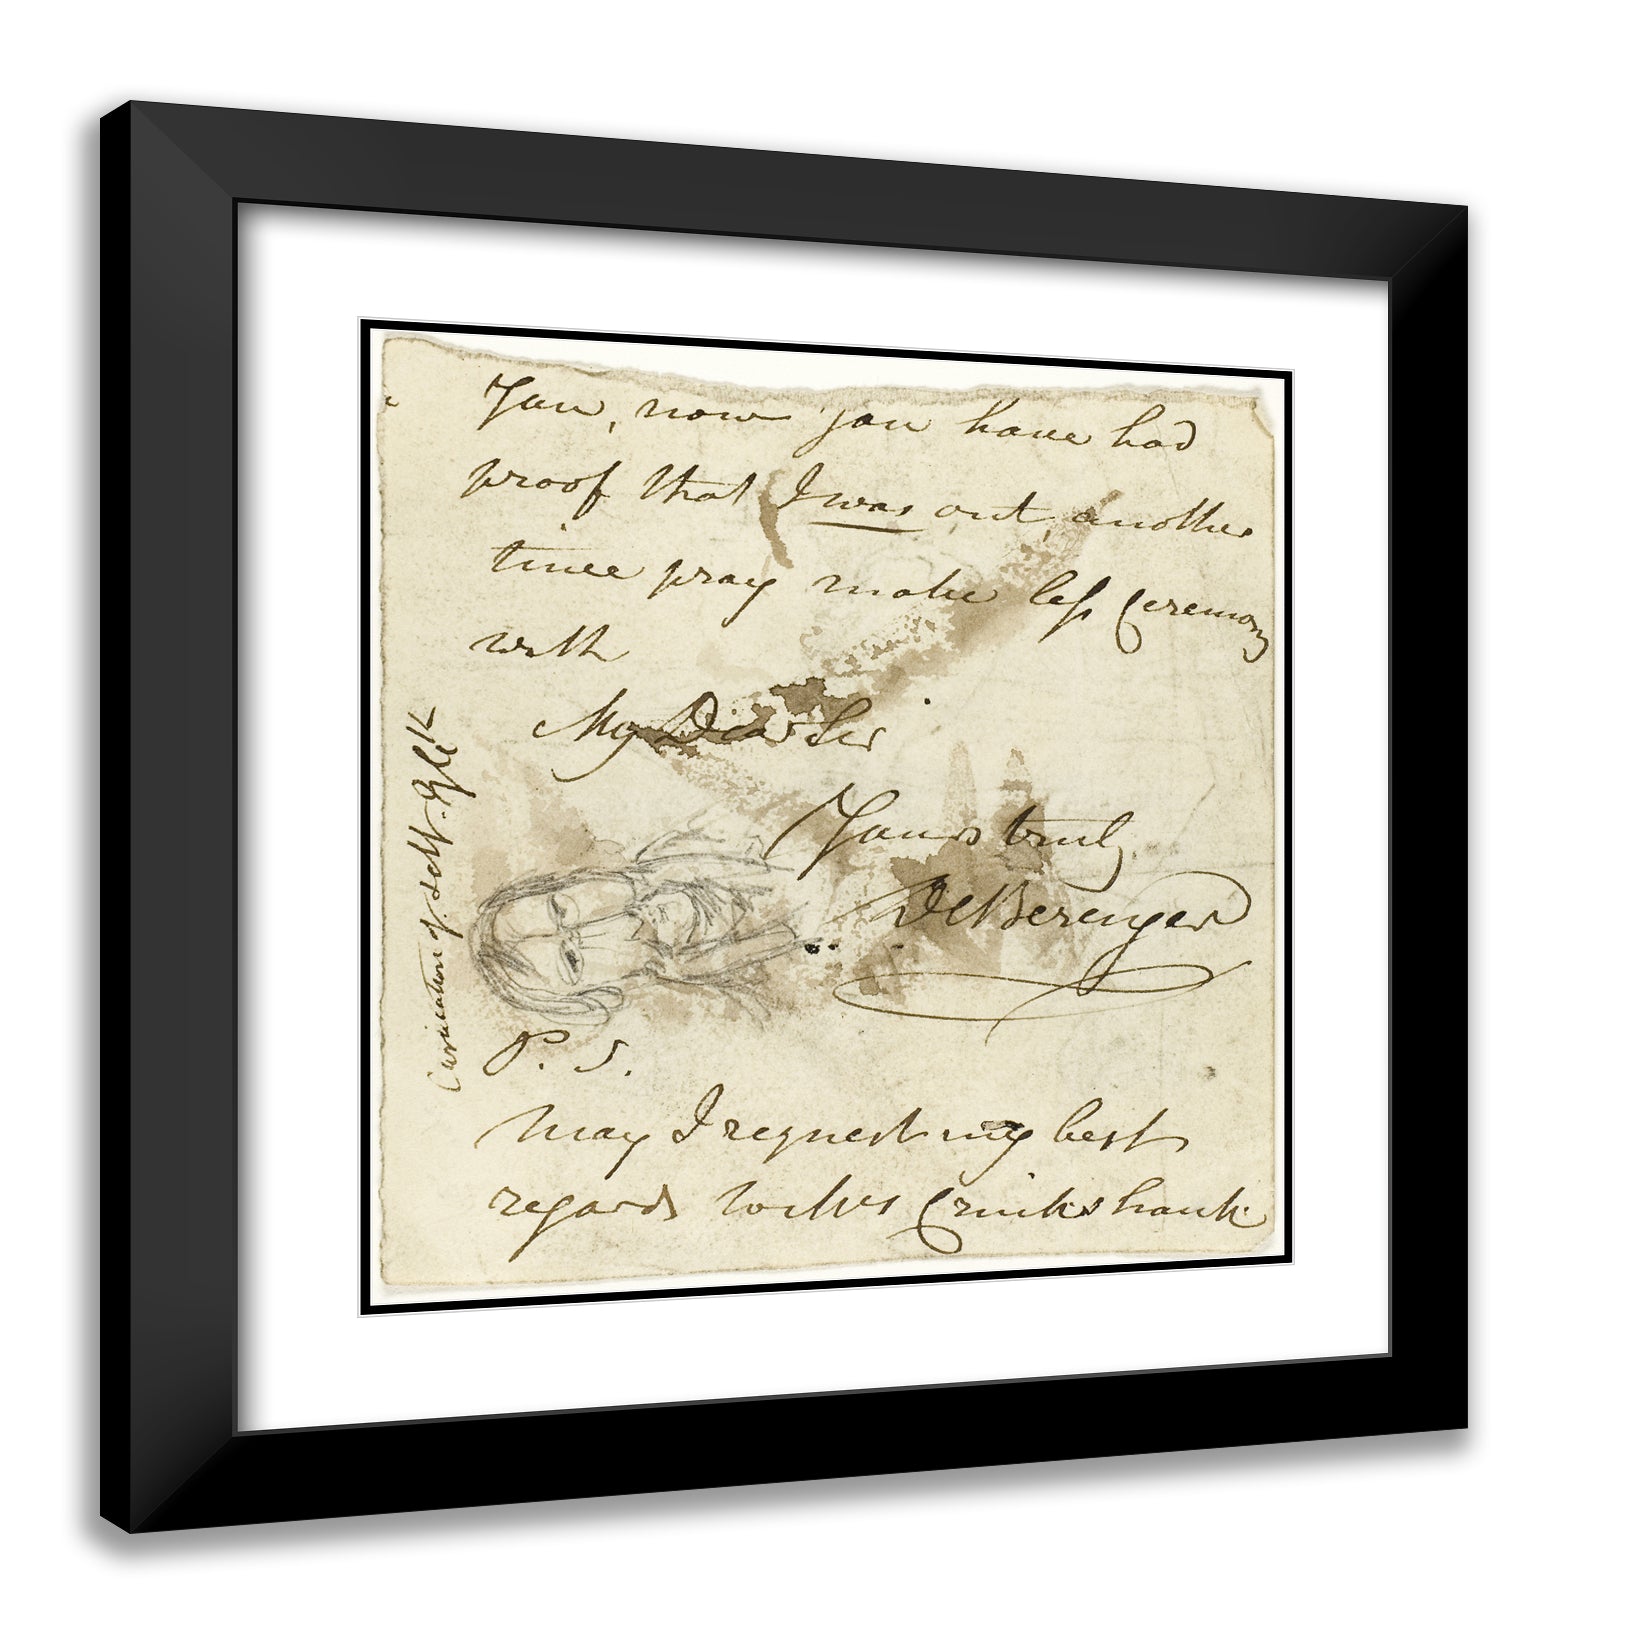 You, now you have had
proof that I was out, another
time pray make less Ceremony
with
My Dear Sir
Yours truly
De Berenger
P. S.
may I request my best
regards to Mrs Cruikshank
Caricature of self.